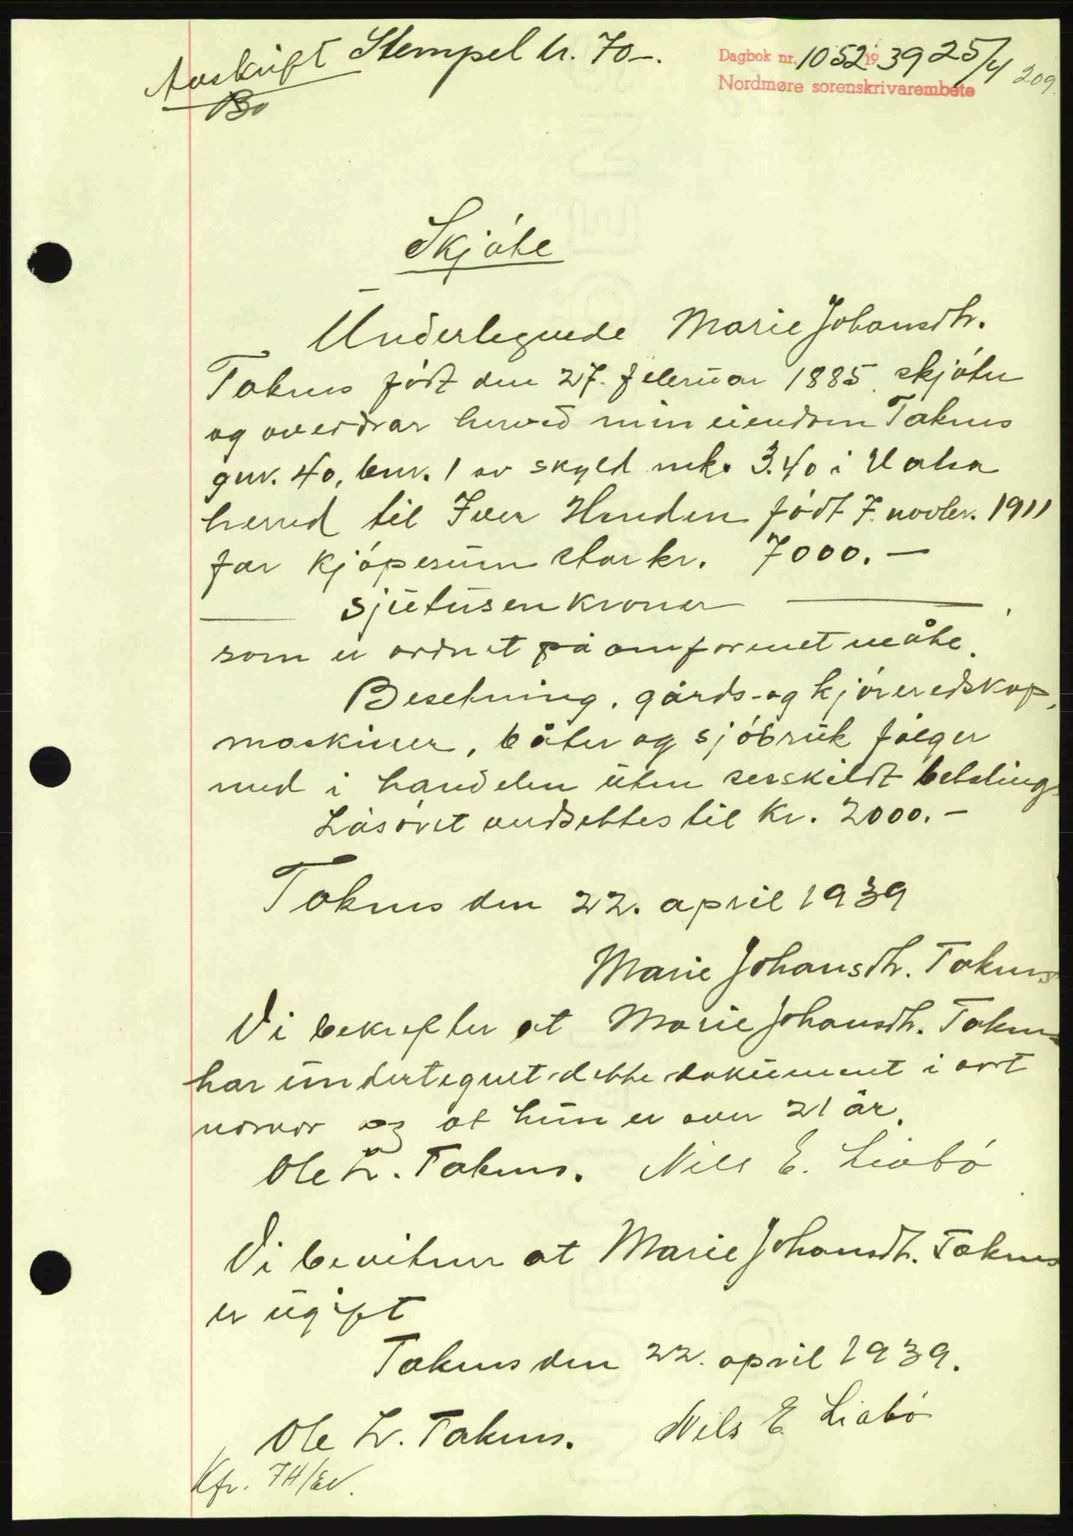 Avskrift Stempel kr. 70-.
Dagbok nr. 1052 1939 25/4 209.
Bo
Nordmøre sorenskrivarembete
Skjöte
Undertegnede Marie Johansdtr.
Taknes født den 27. februar 1885 skjöter
og overdrar herved min eiendom Taknes
gnr. 40, bnr. 1 av skyld mk. 3.40 i Valsøy
herred til Iver Henden født 7. novbr. 1911
for kjöpesum stor kr. 7000.—
— sjutusen kroner —
som er ordnet på omforenet måte.
Besetning, gårds- og kjöreredskap,
maskiner, båter og sjöbruk fölger
med i handelen uten serskildt betaling
Lösöret verdsettes til Kr. 2000.-
Taknes den 22. april 1939
Marie Johansdtr. Taknes
Vi bekrefter at Marie Johansdtr. Taknes
har undertegnet dette dokument i vort
nærvær og at hun er over 21 år.
Ole L. Taknes. Nils E. Liabö
Vi bevitner at Marie Johansdtr. Taknes
er ugift
Taknes den 22. april 1939.
Ole L. Taknes. Nils E. Liabö
Kfr. TH/EV.